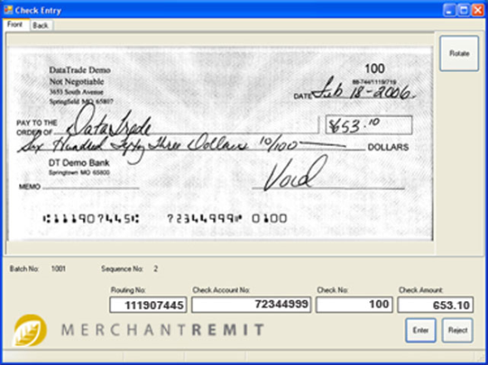 Check Entry
Front Back
Rotate
DataTrade Demo
Not Negotiable
3653 South Avenue
Springfield MO 65807
100
88-744/1119/719
DATE Feb 18-2006
PAY TO THE
ORDER OF DataTrade $653.10
Six Hundred Fifty Three Dollars 10/100 DOLLARS
DT Demo Bank
Springtown MO 65800
MEMO Void
⑆111907445⑆ 72344999⑈ 0100
Batch No: 1001 Sequence No: 2
Routing No: Check Account No: Check No: Check Amount:
111907445 72344999 100 653.10
MERCHANTREMIT
Enter Reject